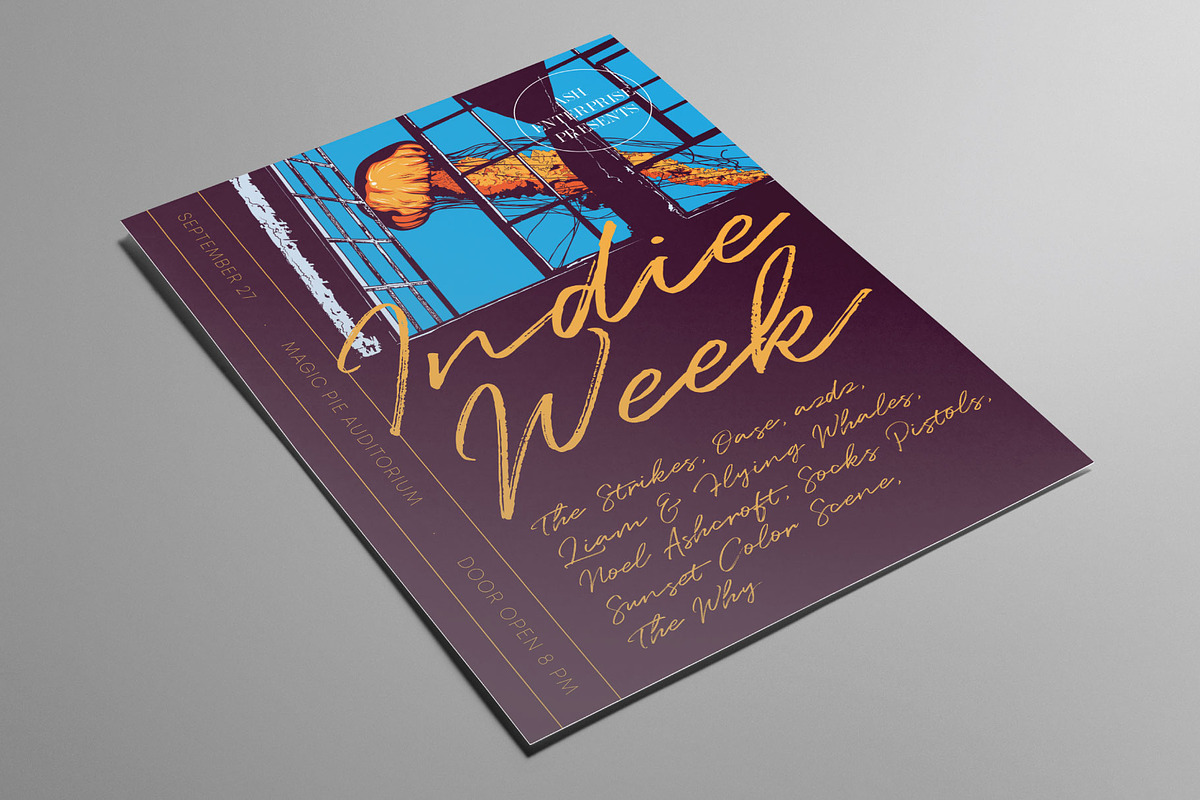 ASH
ENTERPRISE
PRESENTS
Indie
Week
The Strikes, Oase, azdz,
Liam & Flying Whales,
Noel Ashcroft, Socks Pistols,
Sunset Color Scene,
The Why
SEPTEMBER 27
MAGIC PIE AUDITORIUM
DOOR OPEN 8 PM